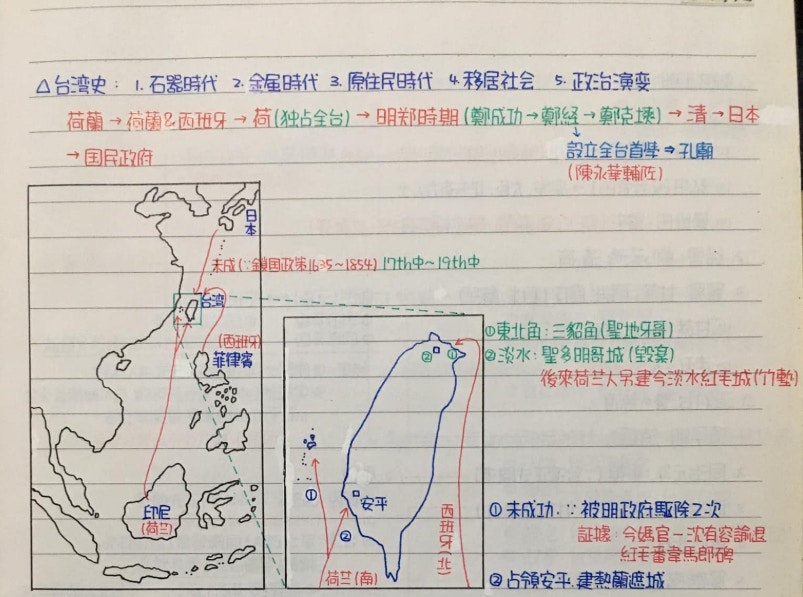 △台湾史: 1.石器時代 2.金属時代 3.原住民時代 4.移居社会 5.政治演变
荷蘭→荷蘭&西班牙→荷(独占全台)→明郑時期(鄭成功→鄭経→鄭克塽)→清→日本
→国民政府
設立全台首學⇒孔廟
(陳永華輔佐)
日本
未成(∵鎖国政策1635~1854) 17th中~19th中
台湾
(西班牙)
菲律賓
印尼
(荷兰)
①東北角:三貂角(聖地牙哥)
②淡水:聖多明哥城(毀棄)
後來荷兰人另建今淡水紅毛城
② ①
①
安平
②
荷兰(南)
西班牙(北)
①未成功∵被明政府驅除2次
証據:今媽宮一沈有容諭退
紅毛番韋馬郎碑
②占領安平.建熱蘭遮城